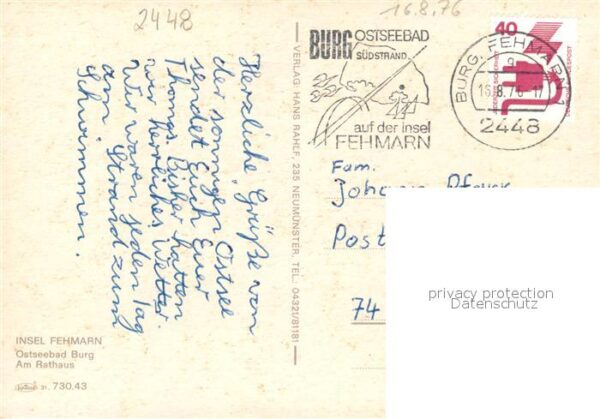 2448
16.8.76
Herzliche Grüße von
der sonnigen Ostsee
sendet Euch Euer
Thomas. Bisher hatten
wir herrliches Wetter.
Wir waren jeden Tag
am Strand zum
Schwimmen.
INSEL FEHMARN
Ostseebad Burg
Am Rathaus
31.730.43
VERLAG HANS RAHLF, 235 NEUMÜNSTER, TEL. 04321/81181
BURG OSTSEEBAD
SÜDSTRAND
auf der insel
FEHMARN
BURG, FEHMARN 1
16.8.76-17
2448
40
Fam.
Johann
Post
74
privacy protection
Datenschutz